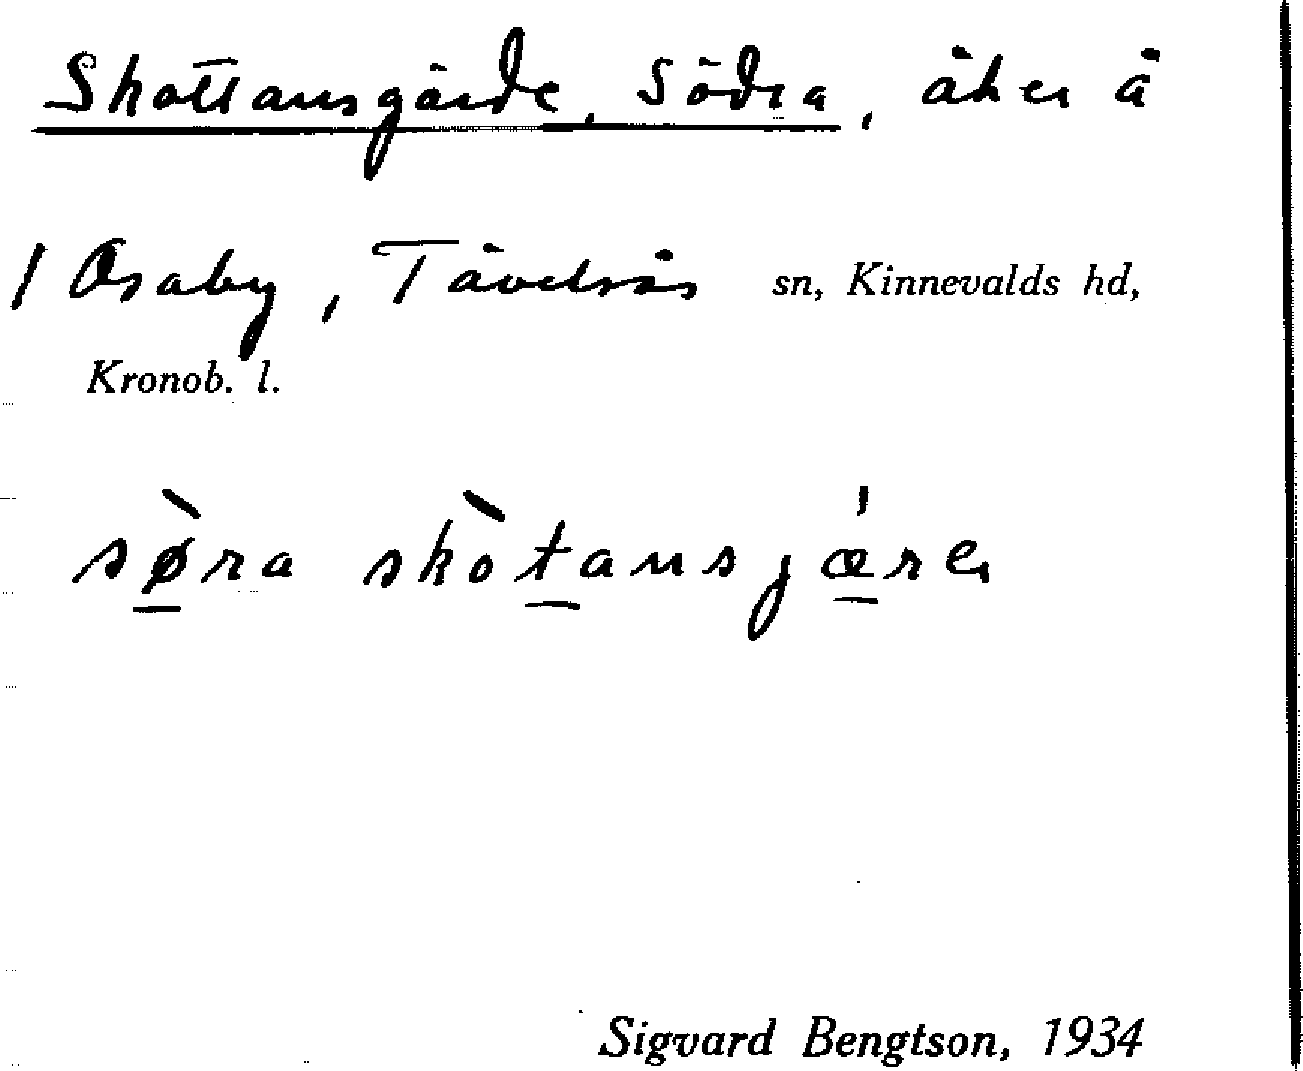 Skottansgärde, Södra, åker å
1 Osaby, Tävelsås sn, Kinnevalds hd,
Kronob. l.
sø̀ra skòtansjǽre
Sigvard Bengtson, 1934